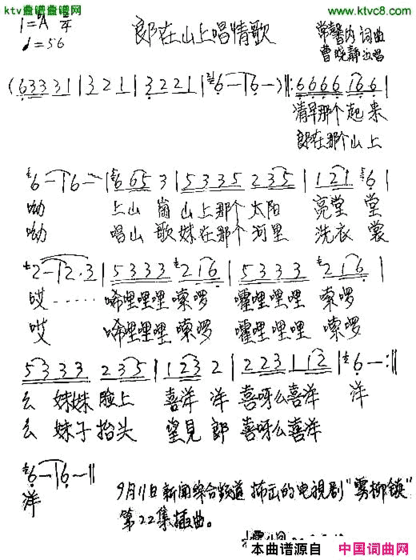 ktv查谱查谱网
www.ktvc8.com
1=A 2/4
♩=56
郎在山上唱情歌
词曲
曹晓静 演唱
(63331|321|3221|6-|6-)‖:6666 166|
清早那个起来
郎在那个山上
6-|6-|665 3|5335 235|121 6|
呦 上山 崗 山上那个 太阳 亮堂 堂
呦 唱山 歌 妹在那个 河里 洗衣 裳
2-|2·3|5333 216|5333 216|
哎······ 哧哩哩哩 嗦啰 嚯哩哩哩 嗦啰
哎 哧哩哩哩 嗦啰 嚯哩哩哩 嗦啰
5333 235|123 2|2231 12|6-:‖
么 妹妹 脸上 喜洋 洋 喜呀么喜洋 洋
么 妹子 抬头 望見 郎 喜呀么喜洋
6-|6-‖
洋
9月11日新闻综合频道 播出的电視剧"雾柳镇"
第22集插曲。
本曲谱源自 中国词曲网